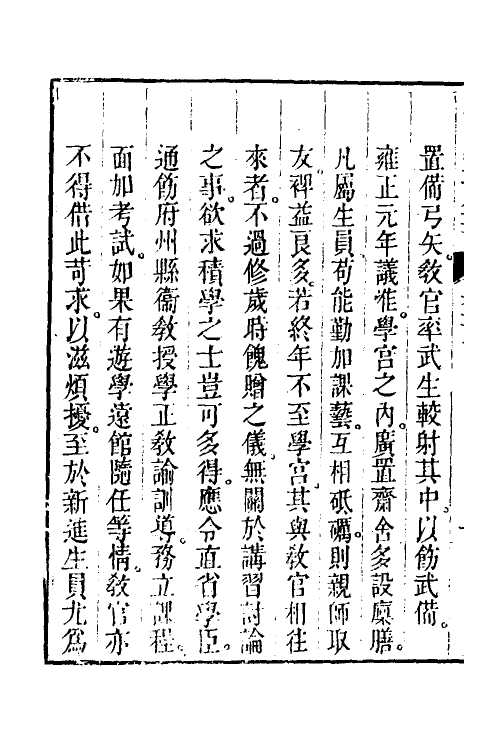 置備弓矢。教官率武生較射其中。以飭武備。
雍正元年議准。學宮之內。廣置齋舍。多設廩膳。
凡屬生員。苟能勤加課藝。互相砥礪。則親師取
友。裨益良多。若終年不至學宮。其與教官相往
來者。不過修歲時餽贈之儀。無關於講習討論
之事。欲求積學之士。豈可多得。應令直省學臣。
通飭府州縣衞教授學正教諭訓導。務立課程。
面加考試。如果有遊學遠館隨任等情。教官亦
不得借此苛求。以滋煩擾。至於新進生員。尤爲